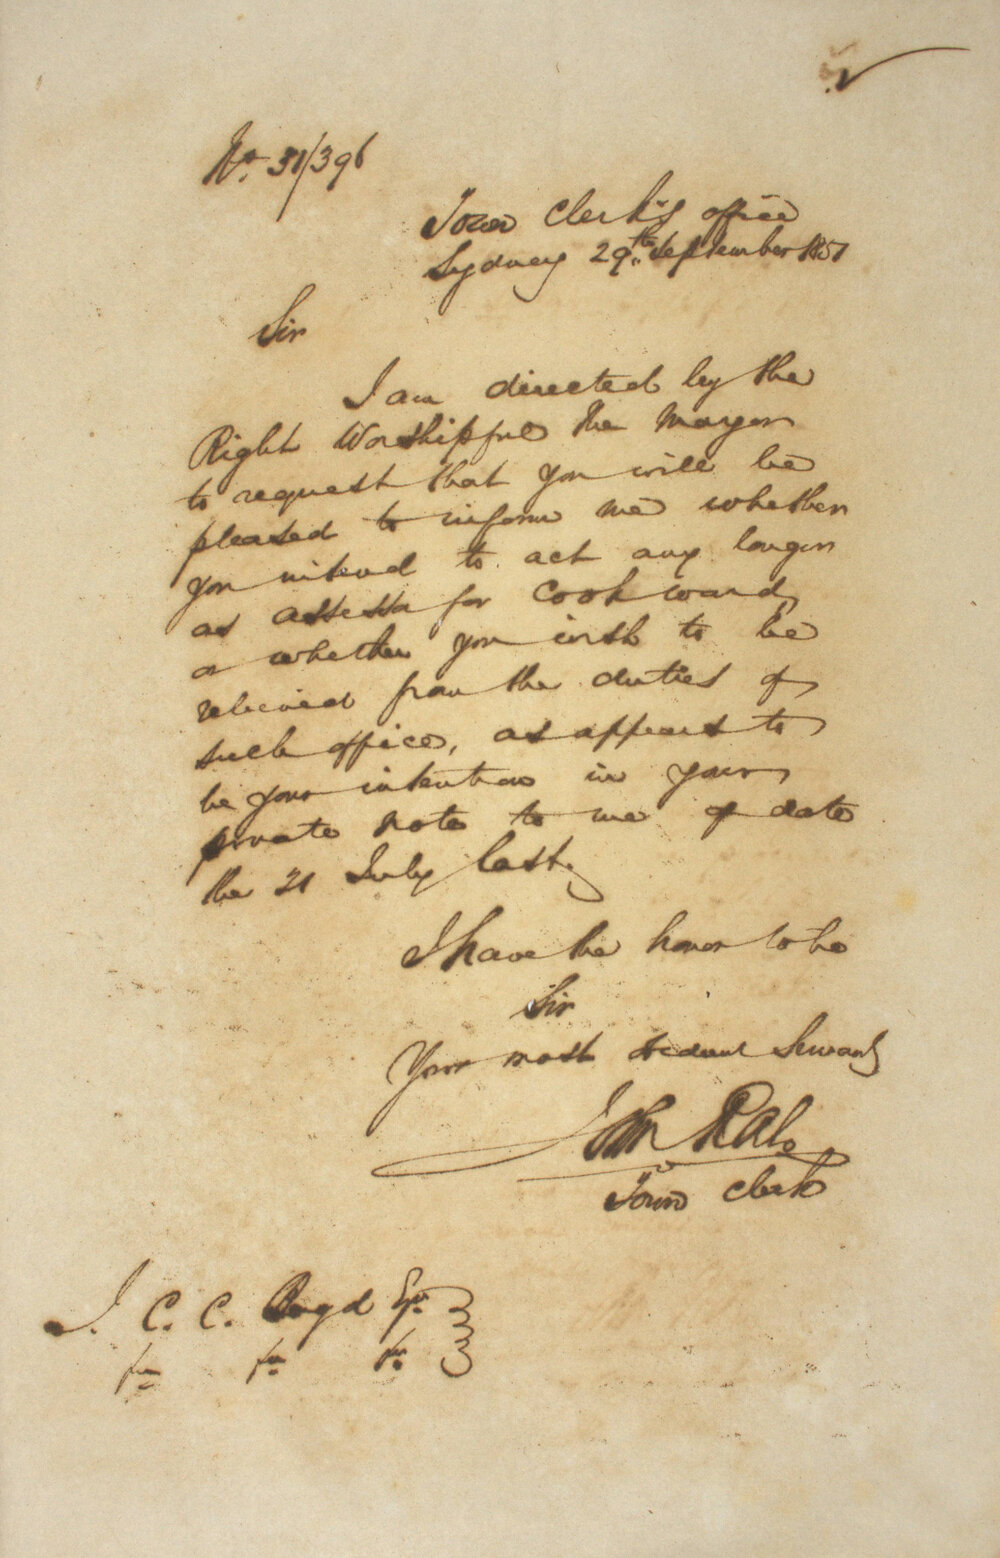 No. 51/396
Town Clerk's office
Sydney 29th September 1851
Sir
I am directed by the
Right Worshipful the Mayor
to request that you will be
pleased to inform me whether
you intend to act any longer
as assessor for Cook ward,
or whether you wish to be
relieved from the duties of
such office, as appears to
be your intention in your
private note to me of date
the 21 July last.
I have the honor to be
Sir
Your most obedient Servant
John Rae
Town Clerk
J. C. C. Boyd Esqr.